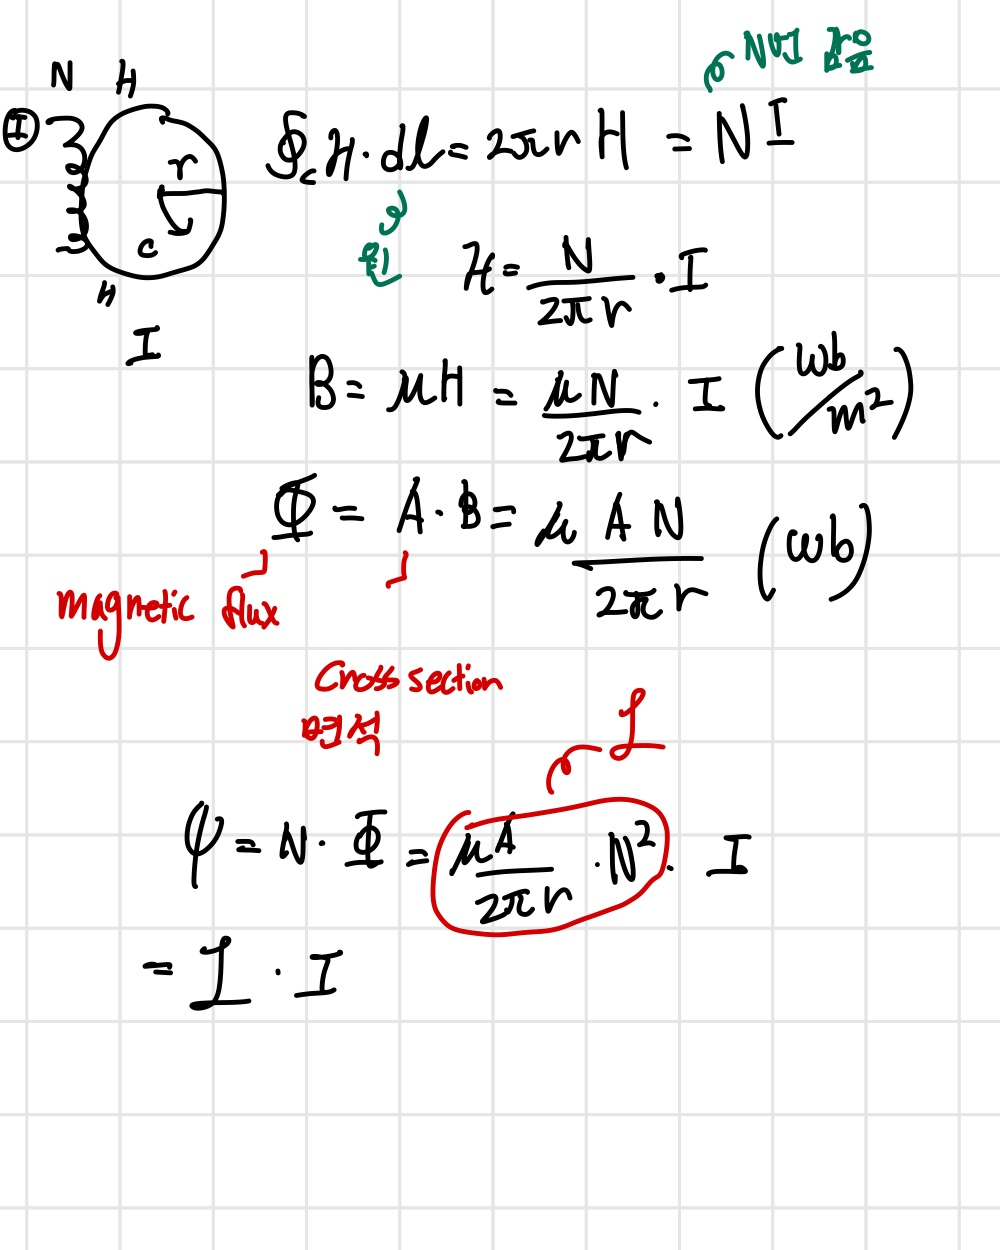 N번 감음
N H
I
r
c
H
I
∮_c H · dl = 2πr H = N I
H = N / 2πr · I
B = μH = μN / 2πr · I (wb/m²)
Φ = A · B = μ A N / 2πr (wb)
magnetic flux
Cross section
면적
L
ψ = N · Φ = μA / 2πr · N² · I
= L · I